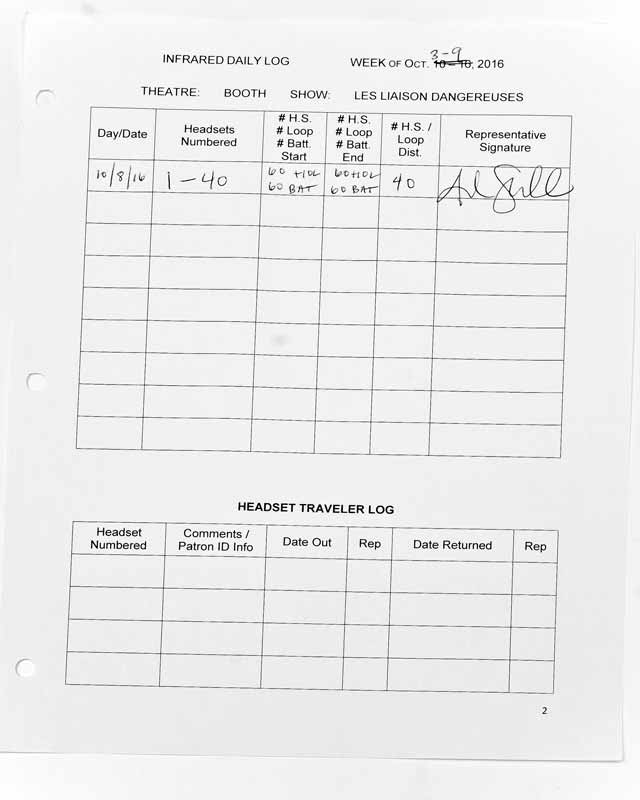 INFRARED DAILY LOG WEEK OF OCT. 3-9 10 – 16, 2016
THEATRE: BOOTH SHOW: LES LIAISON DANGEREUSES
Day/Date Headsets Numbered # H.S. # Loop # Batt. Start # H.S. # Loop # Batt. End # H.S. / Loop Dist. Representative Signature
10/8/16 1-40 60 HOL 60 BAT 60 HOL 60 BAT 40
HEADSET TRAVELER LOG
Headset Numbered Comments / Patron ID Info Date Out Rep Date Returned Rep
2